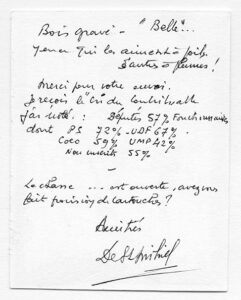 Bois gravé - "Belle"...
Y en a qui les aiment à poils
d'autres à plumes!
Merci pour votre envoi.
Je reçois le "Cri du Contribuable"
j'ai noté : Députés 57% Fonctionnaires
dont PS 72% - UDF 67%.
Coco 59% UMP 42%
Non inscrits 55%
La chasse ... est ouverte, avez-vous
fait provision de cartouches?
Amitiés